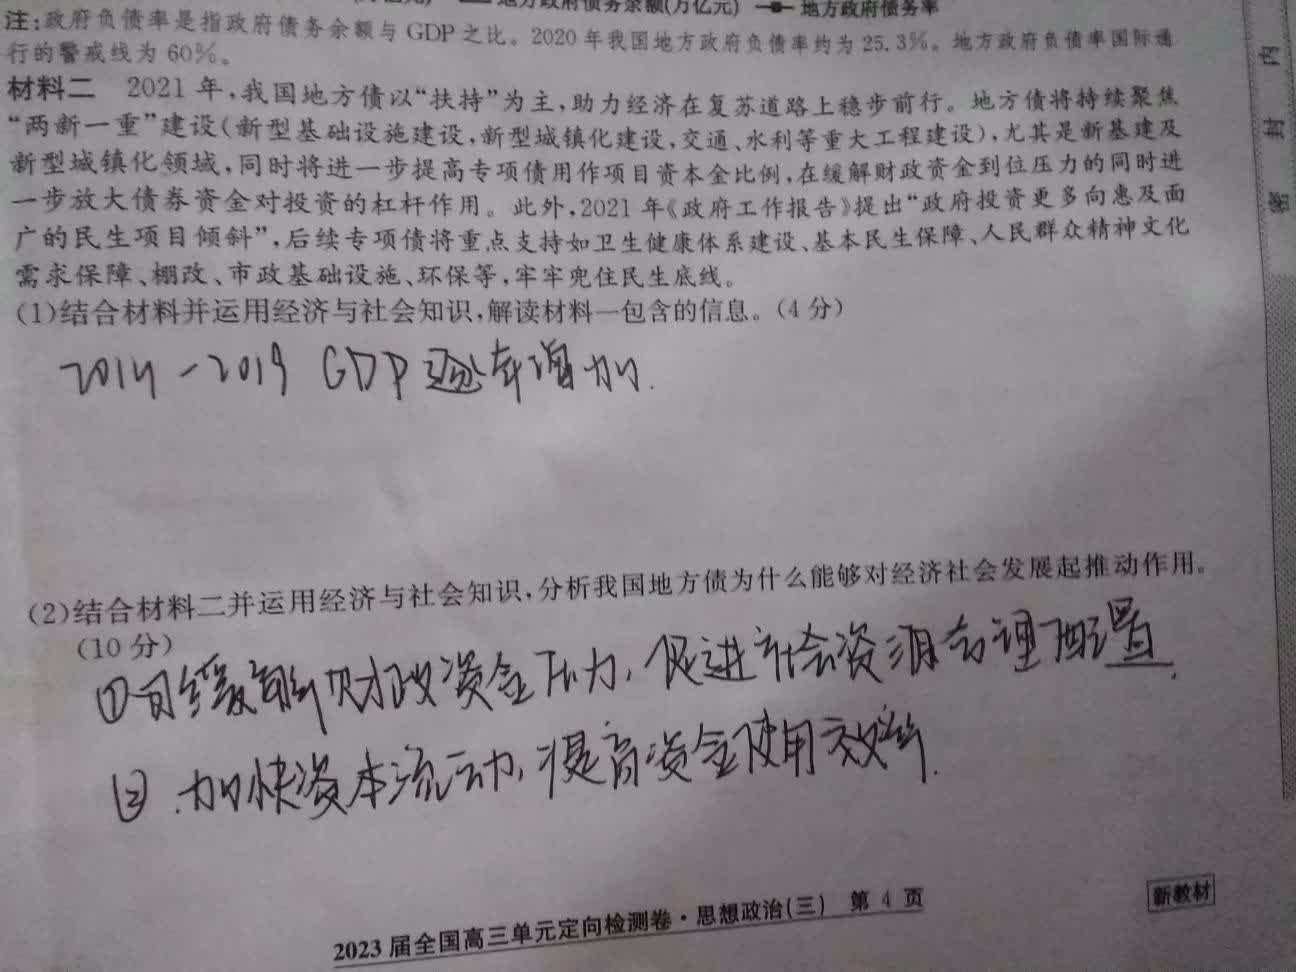 地方政府债务余额(万亿元) 地方政府债务率
注:政府负债率是指政府债务余额与GDP之比。2020年我国地方政府负债率约为25.3%。地方政府负债率国际通
行的警戒线为60%。
材料二 2021年,我国地方债以“扶持”为主,助力经济在复苏道路上稳步前行。地方债将持续聚焦
“两新一重”建设(新型基础设施建设,新型城镇化建设,交通、水利等重大工程建设),尤其是新基建及
新型城镇化领域,同时将进一步提高专项债用作项目资本金比例,在缓解财政资金到位压力的同时进
一步放大债券资金对投资的杠杆作用。此外,2021年《政府工作报告》提出“政府投资更多向惠及面
广的民生项目倾斜”,后续专项债将重点支持如卫生健康体系建设、基本民生保障、人民群众精神文化
需求保障、棚改、市政基础设施、环保等,牢牢兜住民生底线。
(1)结合材料并运用经济与社会知识,解读材料一包含的信息。(4分)
2014-2019 GDP逐年增加.
(2)结合材料二并运用经济与社会知识,分析我国地方债为什么能够对经济社会发展起推动作用。
(10分)
①可缓解财政资金压力,促进社会资源合理配置.
②.加快资本流动,提高资金使用效率.
2023届全国高三单元定向检测卷·思想政治(三) 第4页
新教材
内
封
密